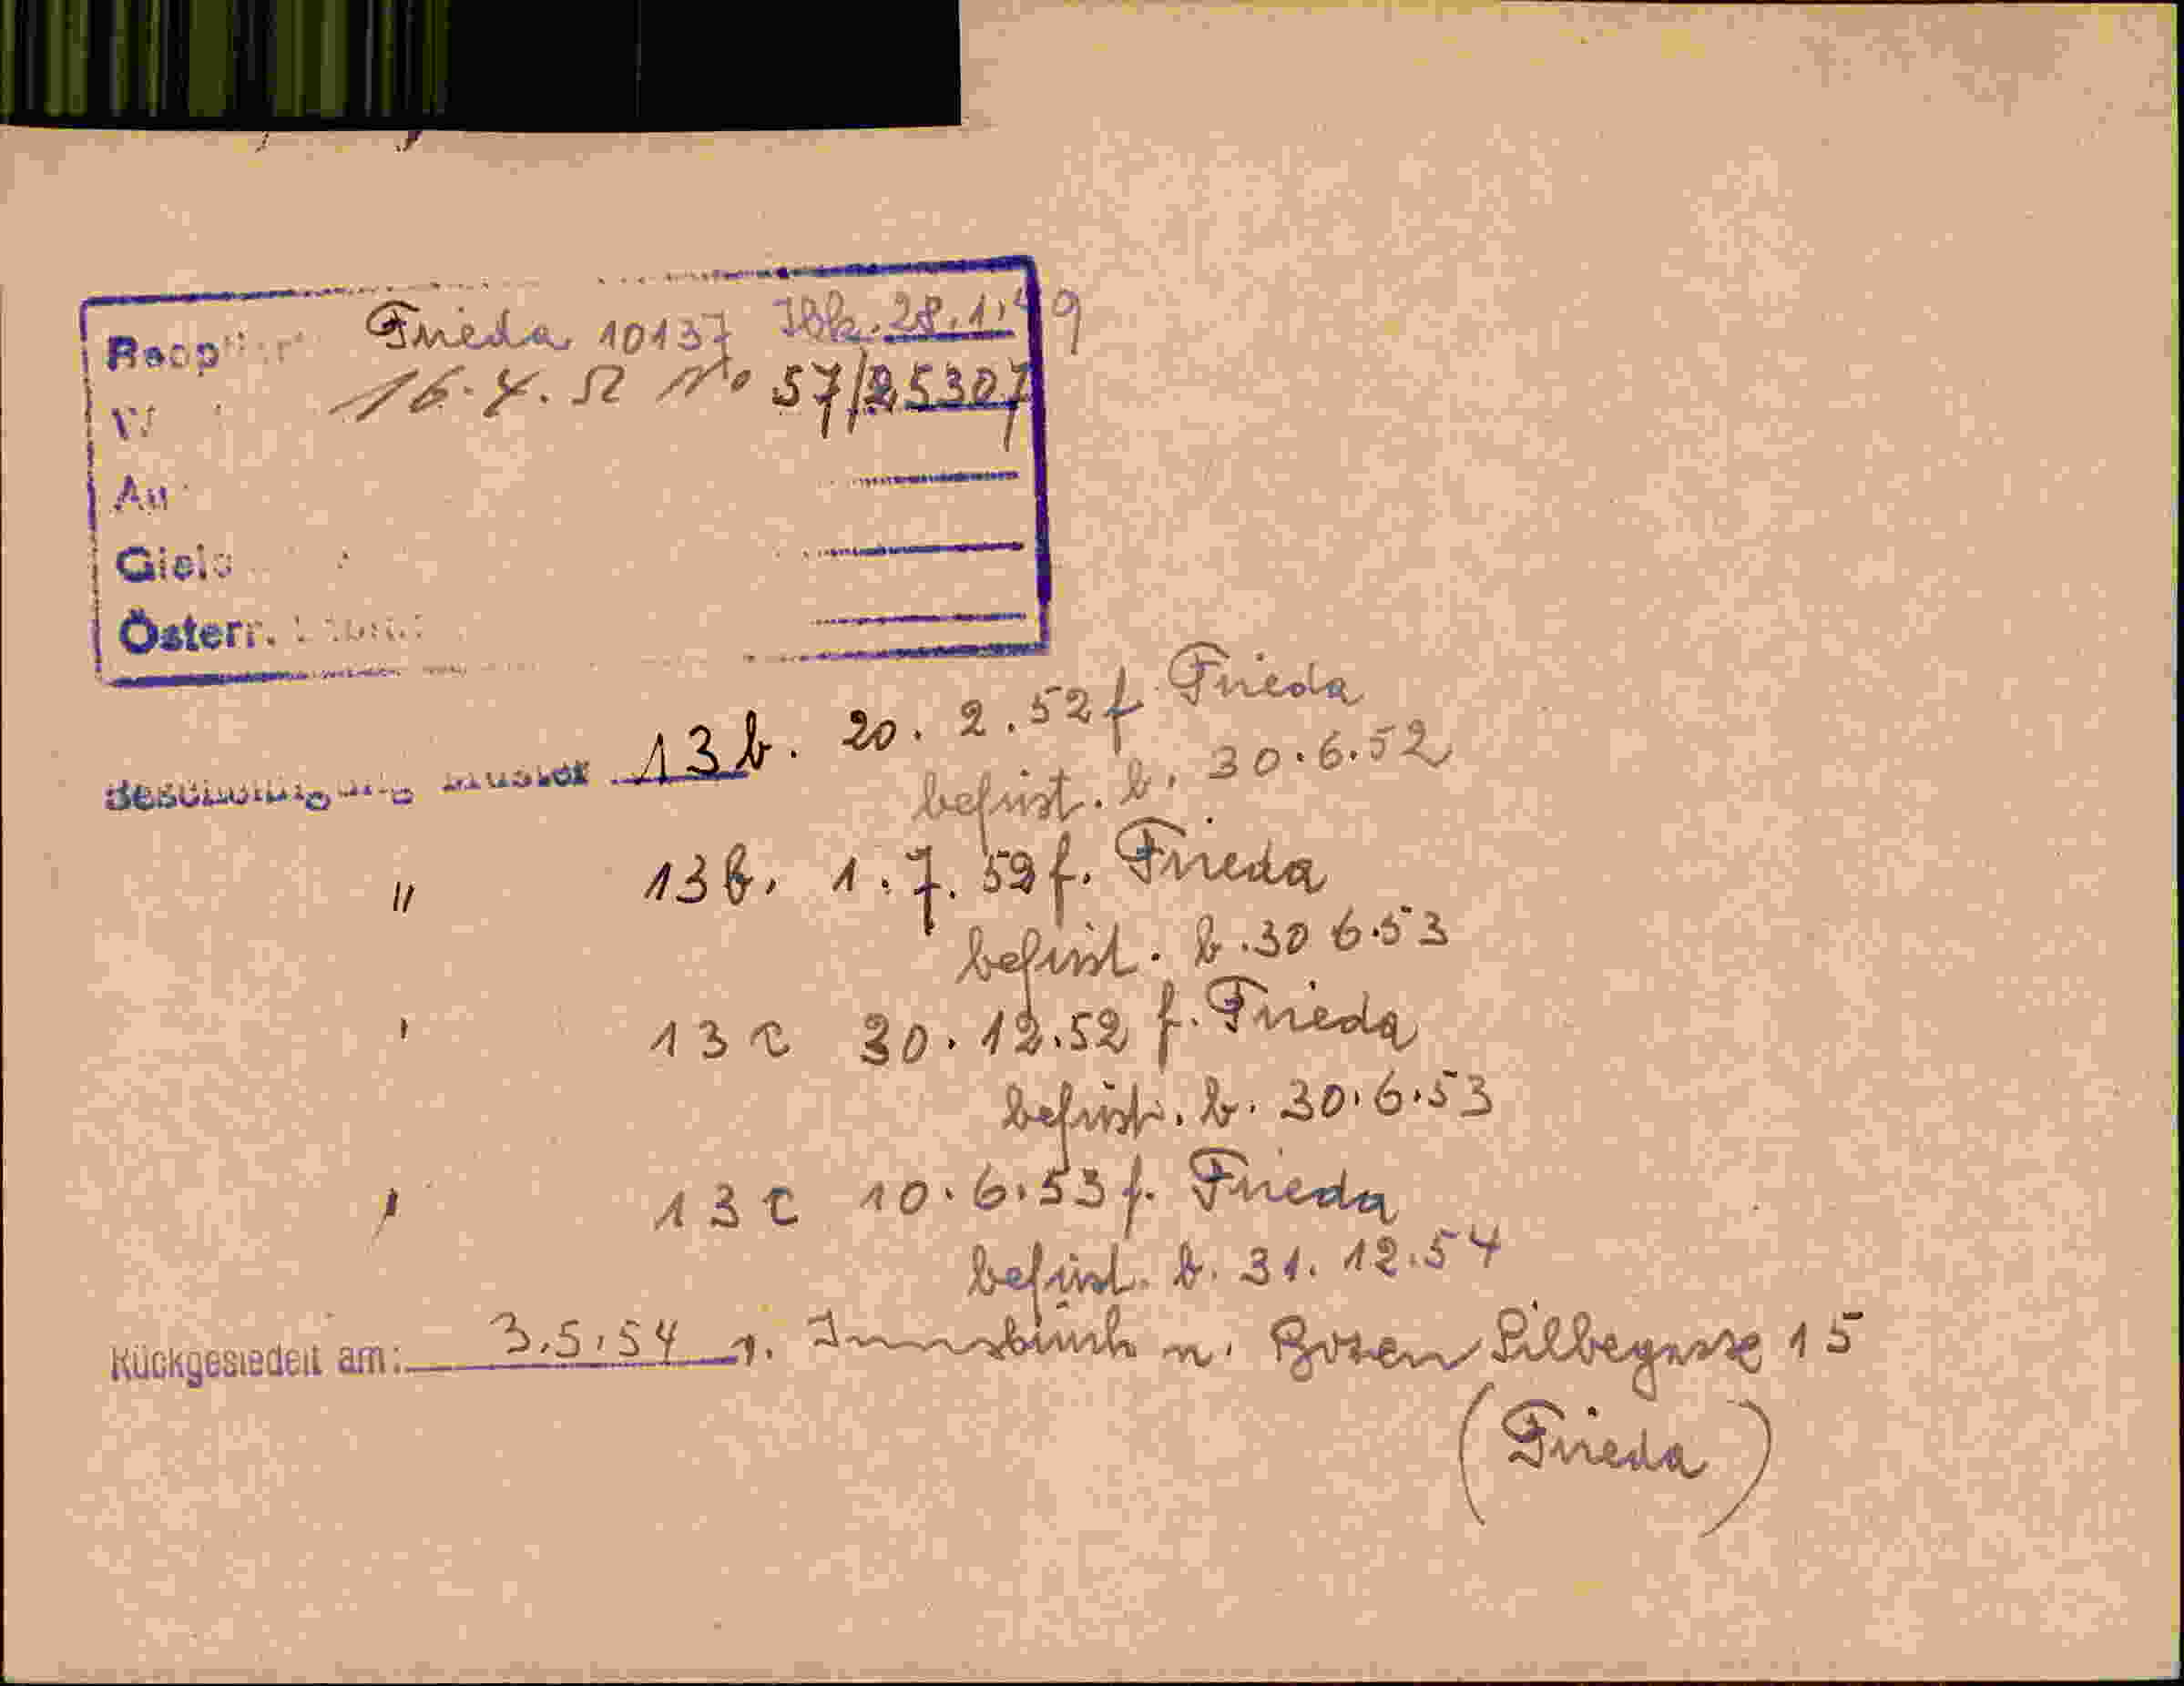 Frieda 10137 Ibk. 28.1.49
16.4.52 No 57/25307
Au
Österr.
13b. 20.2.52 f. Frieda
befrist. b. 30.6.52
" 13b. 1.7.52 f. Frieda
befrist. b. 30 6.53
" 13c 30.12.52 f. Frieda
befrist. b. 30.6.53
" 13c 10.6.53 f. Frieda
befrist. b. 31.12.54
Rückgesiedelt am: 3.5.54 v. Innsbruck n. Bozen 15
(Frieda)